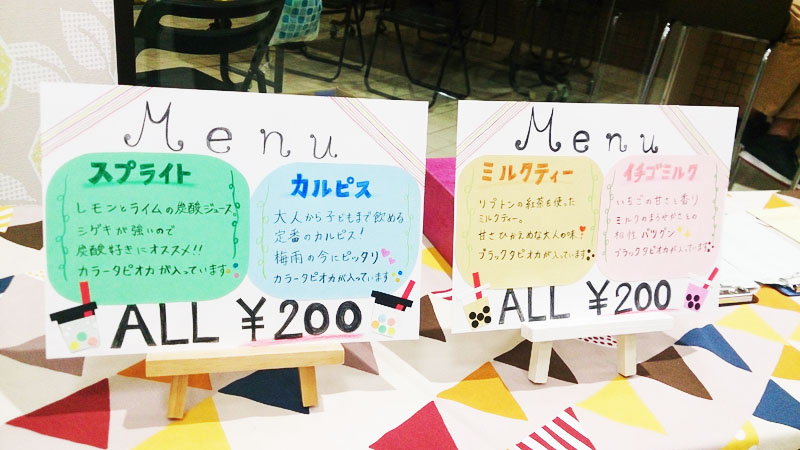 Menu
スプライト
レモンとライムの炭酸ジュース。
シゲキが強いので
炭酸好きにオススメ!!
カラータピオカが入っています
カルピス
大人から子どもまで飲める
定番のカルピス!
梅雨の今にピッタリ
カラータピオカが入っています
ALL ¥200
Menu
ミルクティー
リプトンの紅茶を使った
ミルクティー。
甘さひかえめな大人の味!
ブラックタピオカが入っています
イチゴミルク
いちごの甘さと香り
ミルクのまろやかさとの
相性バツグン
ブラックタピオカが入っています
ALL ¥200